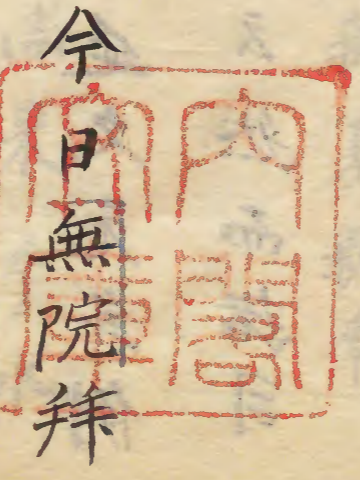 今日無院拜
內閣